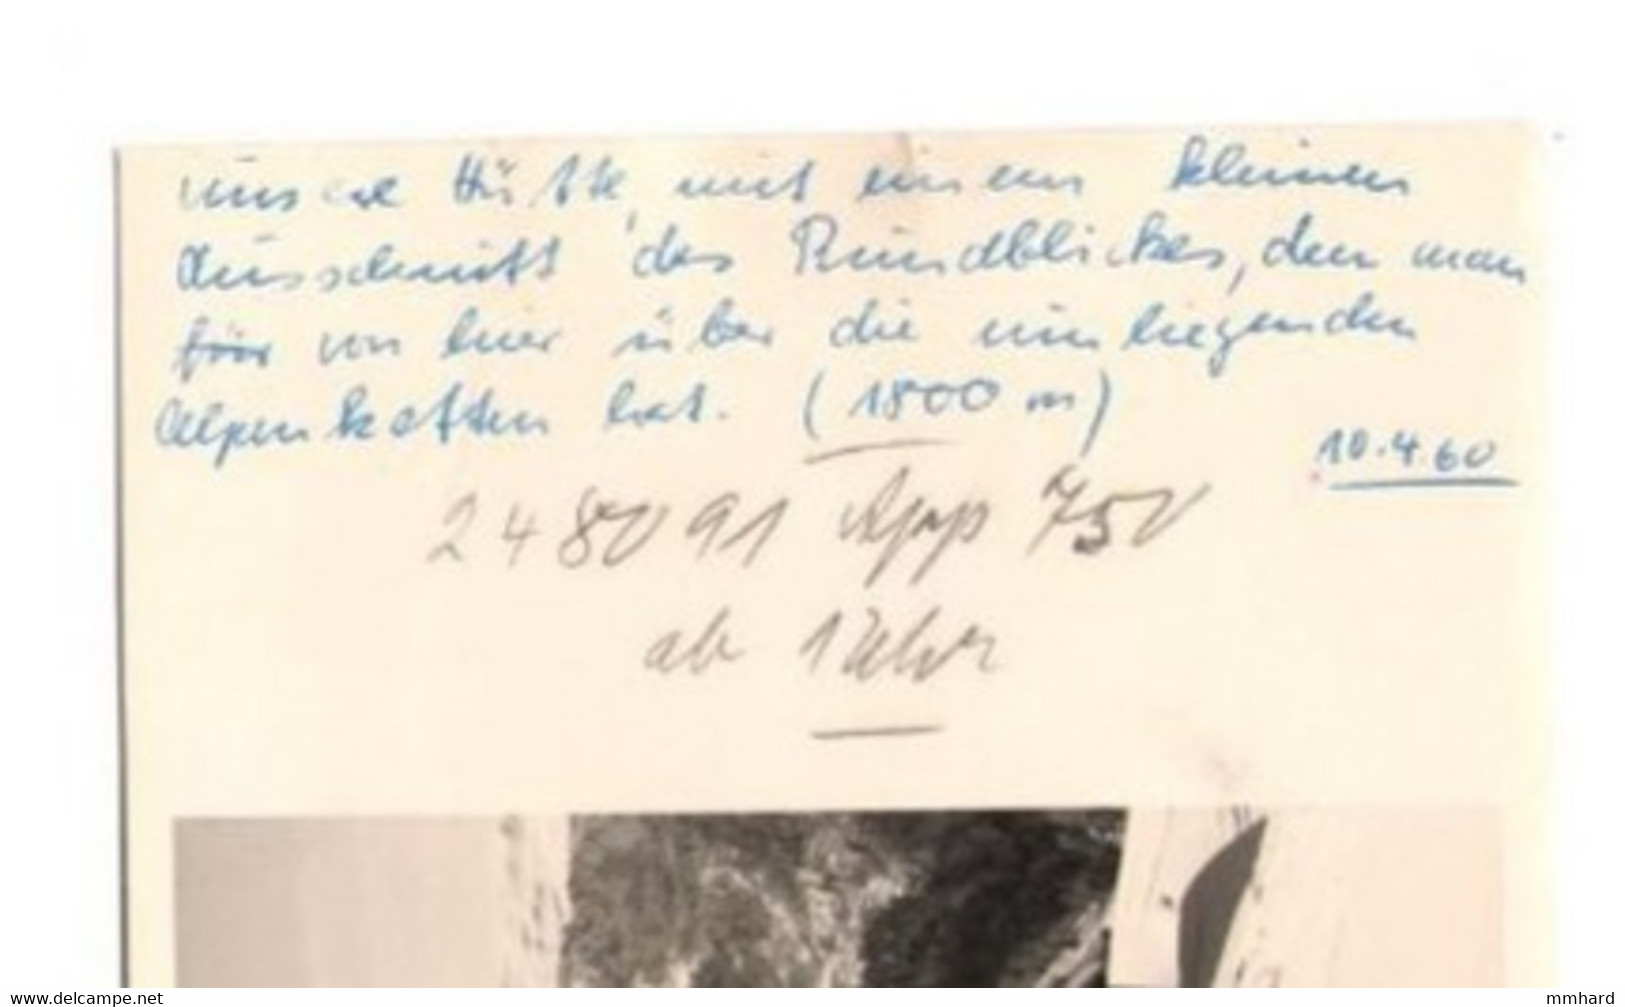 unsere Hütte, mit einem kleinen
Ausschnitt des Rundblickes, den man
von hier über die umliegenden
Alpenketten hat. (1800 m)
10.4.60
248091 App 750
ab 1 Uhr
www.delcampe.net
mmhard